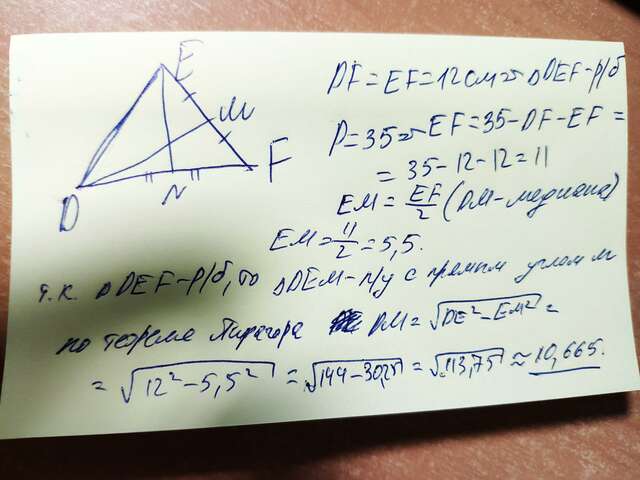 E
M
F
D
N
DF = EF = 12 см ⇒ ΔDEF - р/б
P = 35 ⇒ EF = 35 - DF - EF =
= 35 - 12 - 12 = 11
EM = EF/2 (DM - медиана)
EM = 11/2 = 5,5.
т.к. ΔDEF - р/б, то ΔDEM - п/у с прямым углом M
по теореме Пифагора DM = √(DE² - EM²) =
= √(12² - 5,5²) = √(144 - 30,25) = √113,75 ≈ 10,665.